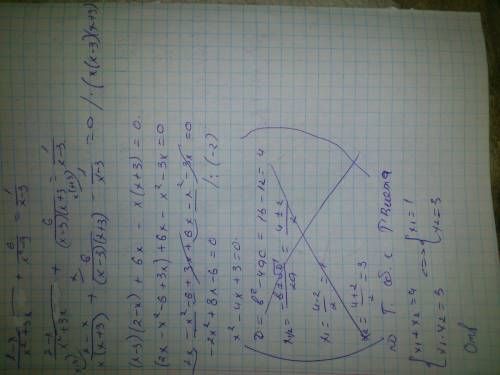 2-x/x²+3x + 6/x²-9 = 1/x-3
2-x/x²+3x + 6/(x-3)(x+3) = 1/x-3
2-x/x(x+3) + 6/(x-3)(x+3) - 1/x-3 = 0 /·(x(x-3)(x+3)
(x-3)(2-x) + 6x - x(x+3) = 0
(2x - x² - 6 + 3x) + 6x - x² - 3x = 0
2x - x² - 6 + 3x + 6x - x² - 3x = 0
-2x² + 8x - 6 = 0 /:(-2)
x² - 4x + 3 = 0
D = b² - 4ac = 16 - 12 = 4
x1 = 4-2/2 = 1
x2 = 4+2/2 = 3
по Т. об. с Т Виета
x1 + x2 = 4
x1 · x2 = 3
<=> x1 = 1
x2 = 3
Отв